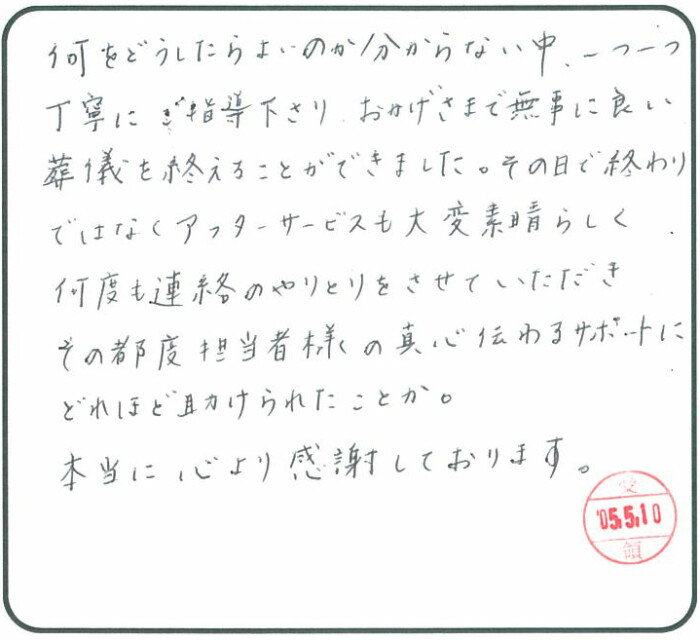 何をどうしたらよいのか分からない中、一つ一つ
丁寧にご指導下さり、おかげさまで無事に良い
葬儀を終えることができました。その日で終わり
ではなくアフターサービスも大変素晴らしく、
何度も連絡のやりとりをさせていただき
その都度担当者様の真心伝わるサポートに
どれほど助けられたことか。
本当に心より感謝しております。
受
'05.5.10
領